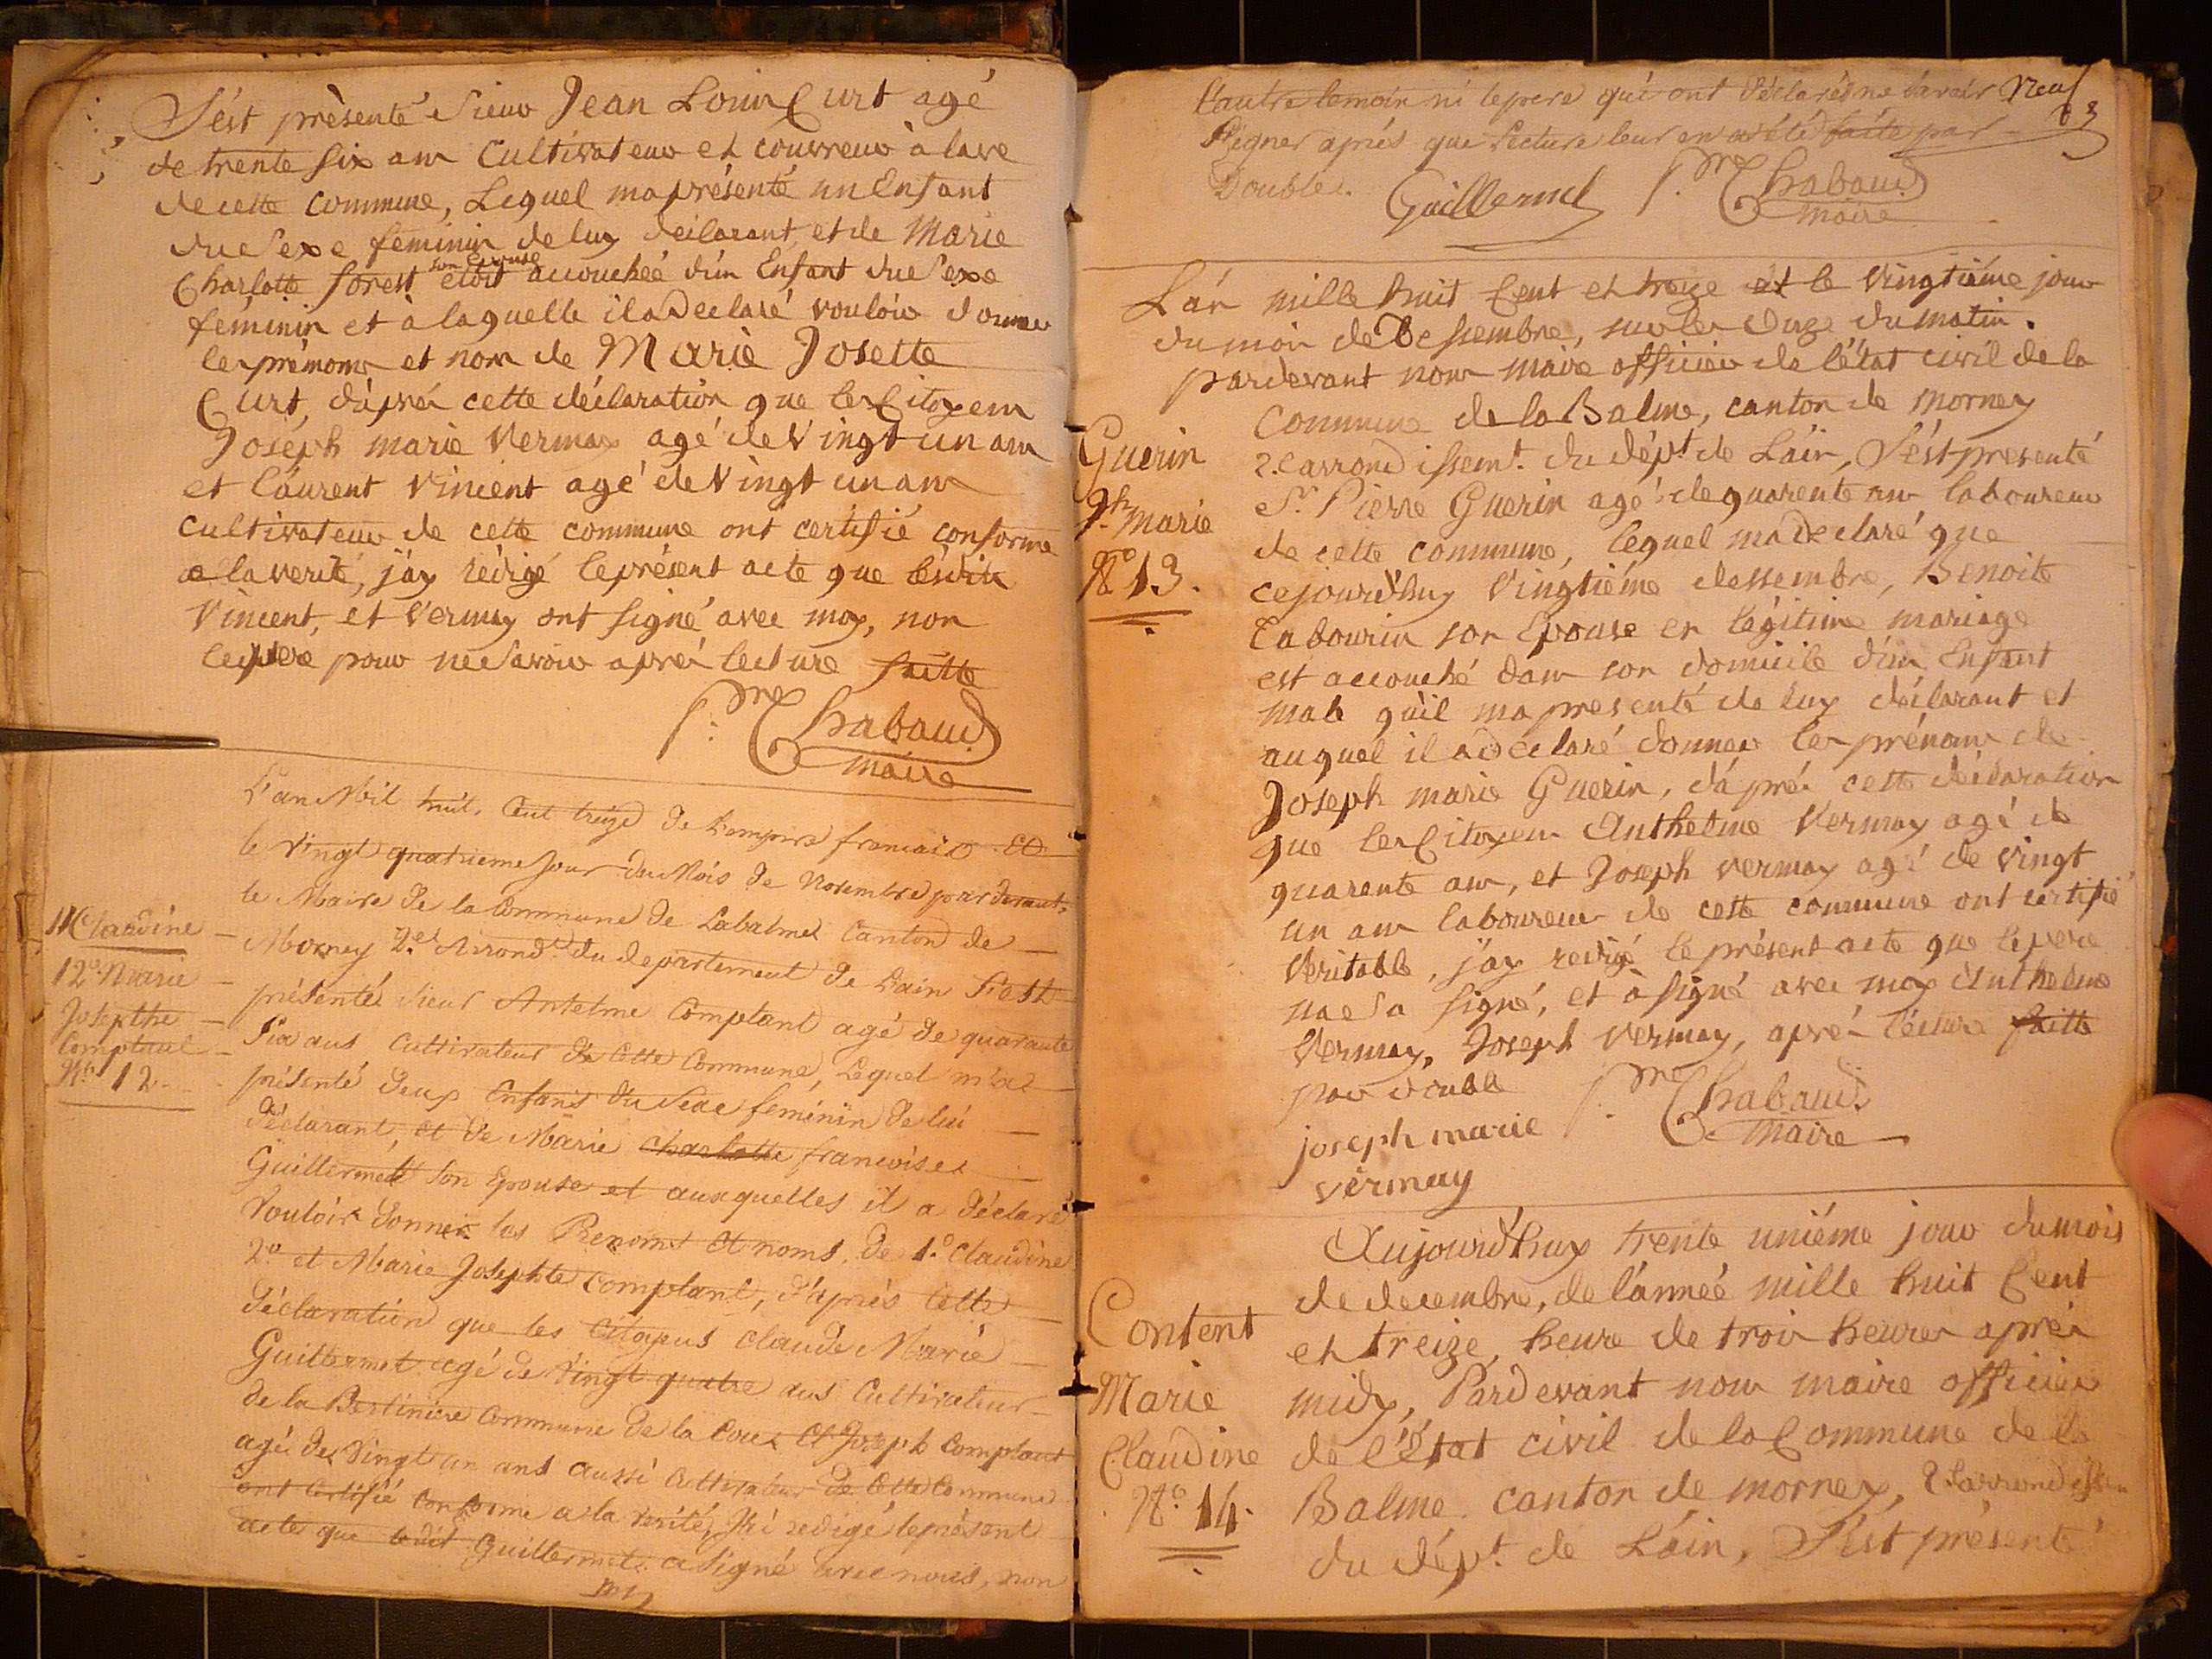 S'ést prèsenté Sieur Jean Louis Curt agé
de trente six ans Cultivateur et couvreur à lave
de cette commune, Lequel ma présenté un Enfant
du Sexe féminin de luy déclarant et de Marie
Charlotte forest son Epouse étoit accouchée d'un Enfant du Sexe
féminin et à laquelle il a déclaré vouloir donner
les prénoms et nom de Marie Josette
Curt, d'après cette déclaration que les Citoyens
Joséph marie Vermay agé de Vingt un ans
et Laurent Vincent agé de Vingt un ans
cultivateurs de cette commune ont certifié conforme
a la verité, j'ay rédigé le présent acte que lesdits
Vincent, et Vermay ont signé avec moy, non
le pere pour ne Savoir après lecture faitte
Chabaud
maire
L'an Mil huit Cent treize de L'empire francais et
le Vingt quatrieme Jour du Mois de Novembre par devant,
le Maire de la Commune de Labalme Canton de
Morney 2.e Arrond.t du departement de L'ain S'est
présenté Sieur Antelme Complant agé de quarante
Six ans Cultivateur de Cette Commune, Lequel m'a
présenté deux Enfans du Sexe feminin de lui
déclarant, et de Marie Charlotte francoise
Guillermet Son Epouse et auxquelles il a déclaré
Vouloir donner les Prenoms et noms de 1.o Claudine
2.o et Marie Josephte Complant, d'après Cette
déclaration que les Citoyens Claude Marie
Guillermet agé de Vingt quatre ans Cultivateur
de la Bertiniere Commune de la Coux et Joseph Complant
agé de Vingt un ans aussi Cultivateur de Cette Commune
ont Certifié Conforme a la verité, J'ai redigé le présent
acte que ledit Guillermet a Signé avec nous, non
1.o Claudine
12.o Marie
Josepthe
Complant
N.o 12
l'autre temoin ni le pere qui ont déclaré ne Savoir
Signer après que Lecture leur en a été faite par
Double.
Neuf
Guillermet
Chabaud
maire
L'an mille huit Cent et treize et le Vingtiéme jour
du mois de Dessembre, sur les onze du matin.
pardevant nous maire officier de l'état civil de la
Commune de la Balme, canton de Morney
2.e arrondissem.t du dép.t de L'ain, S'ést presenté
S.r Pierre Guerin agé de quarente ans laboureur
de cette commune, lequel ma declaré que
cejourd'huy Vingtiéme dessembre, Benoite
Cabourin son Epouse en légitime mariage
est accouché dans son domicile d'un Enfant
male qu'il ma presenté de luy déclarant et
auquel il a déclaré donner les prénoms de
Joséph marie Guerin, d'après cette déclaration
que les Citoyens Anthelme Vermay agé de
quarante ans, et Joseph Vermay agé de Vingt
un ans laboureurs de cette commune ont certifié
Veritable, j'ay redigé le présent acte que le pere
na Sa signé, et à signé avec moy Anthelme
Vermay, Joseph Vermay, après lécture faitte
par double
joseph marie
vermay
Chabaud
Maire
Guerin
Jph. Marie
N.o 13.
Aujourd'huy trente uniéme jour du mois
de decembre, de l'année mille huit Cent
et treize, heure de trois heures après
midy, Pardevant nous maire officier
de l'État civil de la Commune de la
Balme, canton de mornay, 2.e arrondissem
du dép.t de L'ain, S'ést présenté
Content
Marie
Claudine
N.o 14.